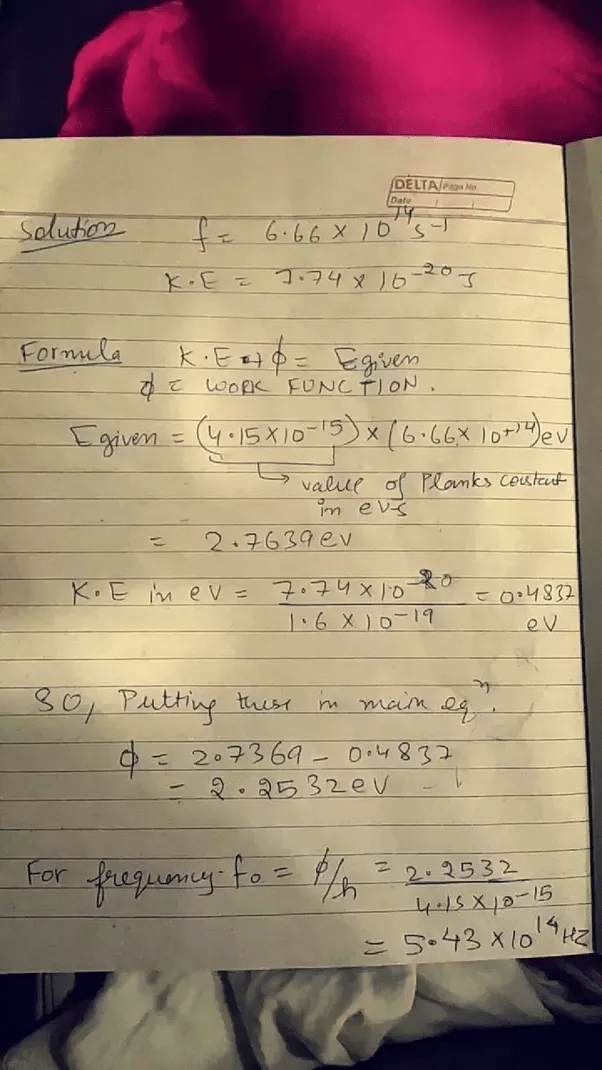 DELTA Page No.
Date
Solution f = 6.66 × 10^14 s-1
K.E = 7.74 × 10^-20 J
Formula K.E + ϕ = E given
ϕ = WORK FUNCTION.
E given = (4.15×10^-15) × (6.66× 10^+14) ev
→ value of Planks constant
in evs
= 2.7639 ev
K.E in ev = 7.74 × 10^-20 / 1.6 × 10^-19 = 0.4837
eV
SO, Putting these in main eq^n.
ϕ = 2.7369 - 0.4837
= 2.2532 eV
For frequency f₀ = ϕ/h = 2.2532 / 4.15×10^-15
= 5.43 ×10^14 HZ